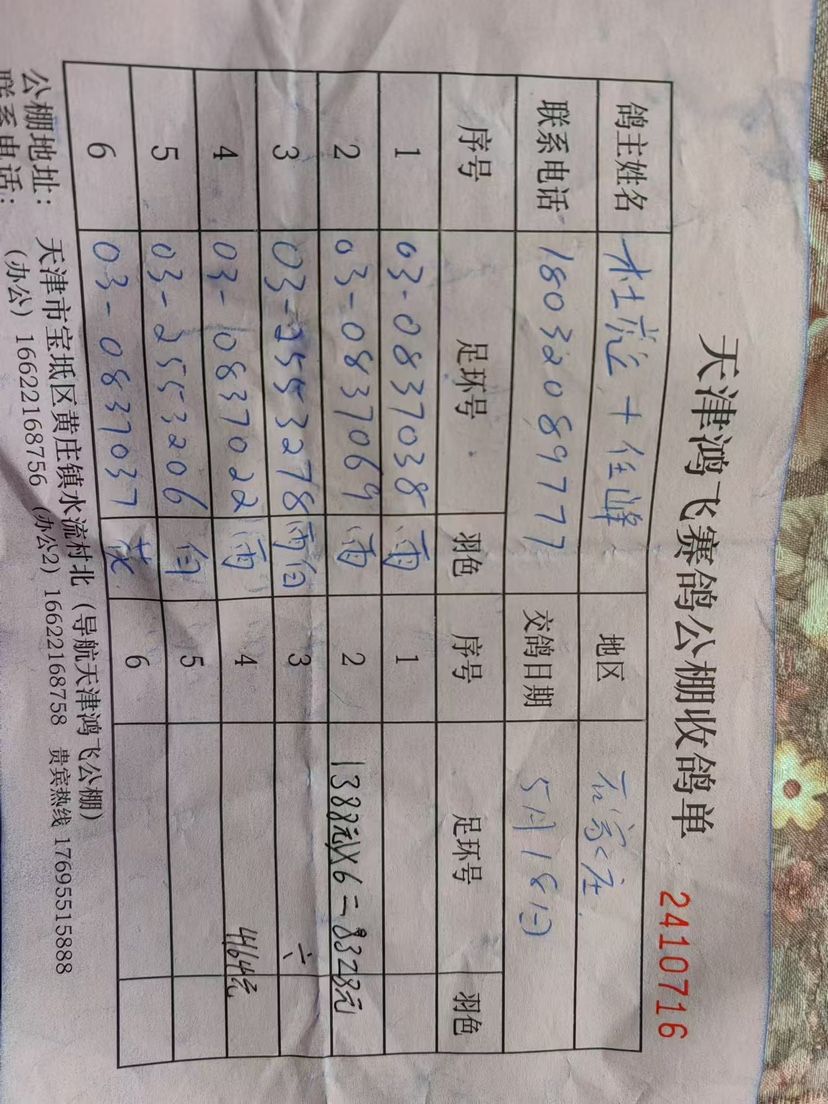 天津鸿飞赛鸽公棚收鸽单 2410716
鸽主姓名 杜彪+任峰 地区 石家庄
联系电话 18032089777 交鸽日期 5月18日
序号 足环号 羽色 序号 足环号 羽色
1 03-0837038 雨 1
2 03-0837069 雨 2 1388元×6=8328元
3 03-2553278 雨白 3
4 03-0837022 雨 4 4164元
5 03-2553206 5
6 03-0837037 花 6
公棚地址: 天津市宝坻区黄庄镇水流村北(导航天津鸿飞公棚)
联系电话: (办公) 16622168756 (办公2) 16622168758 贵宾热线 17695515888